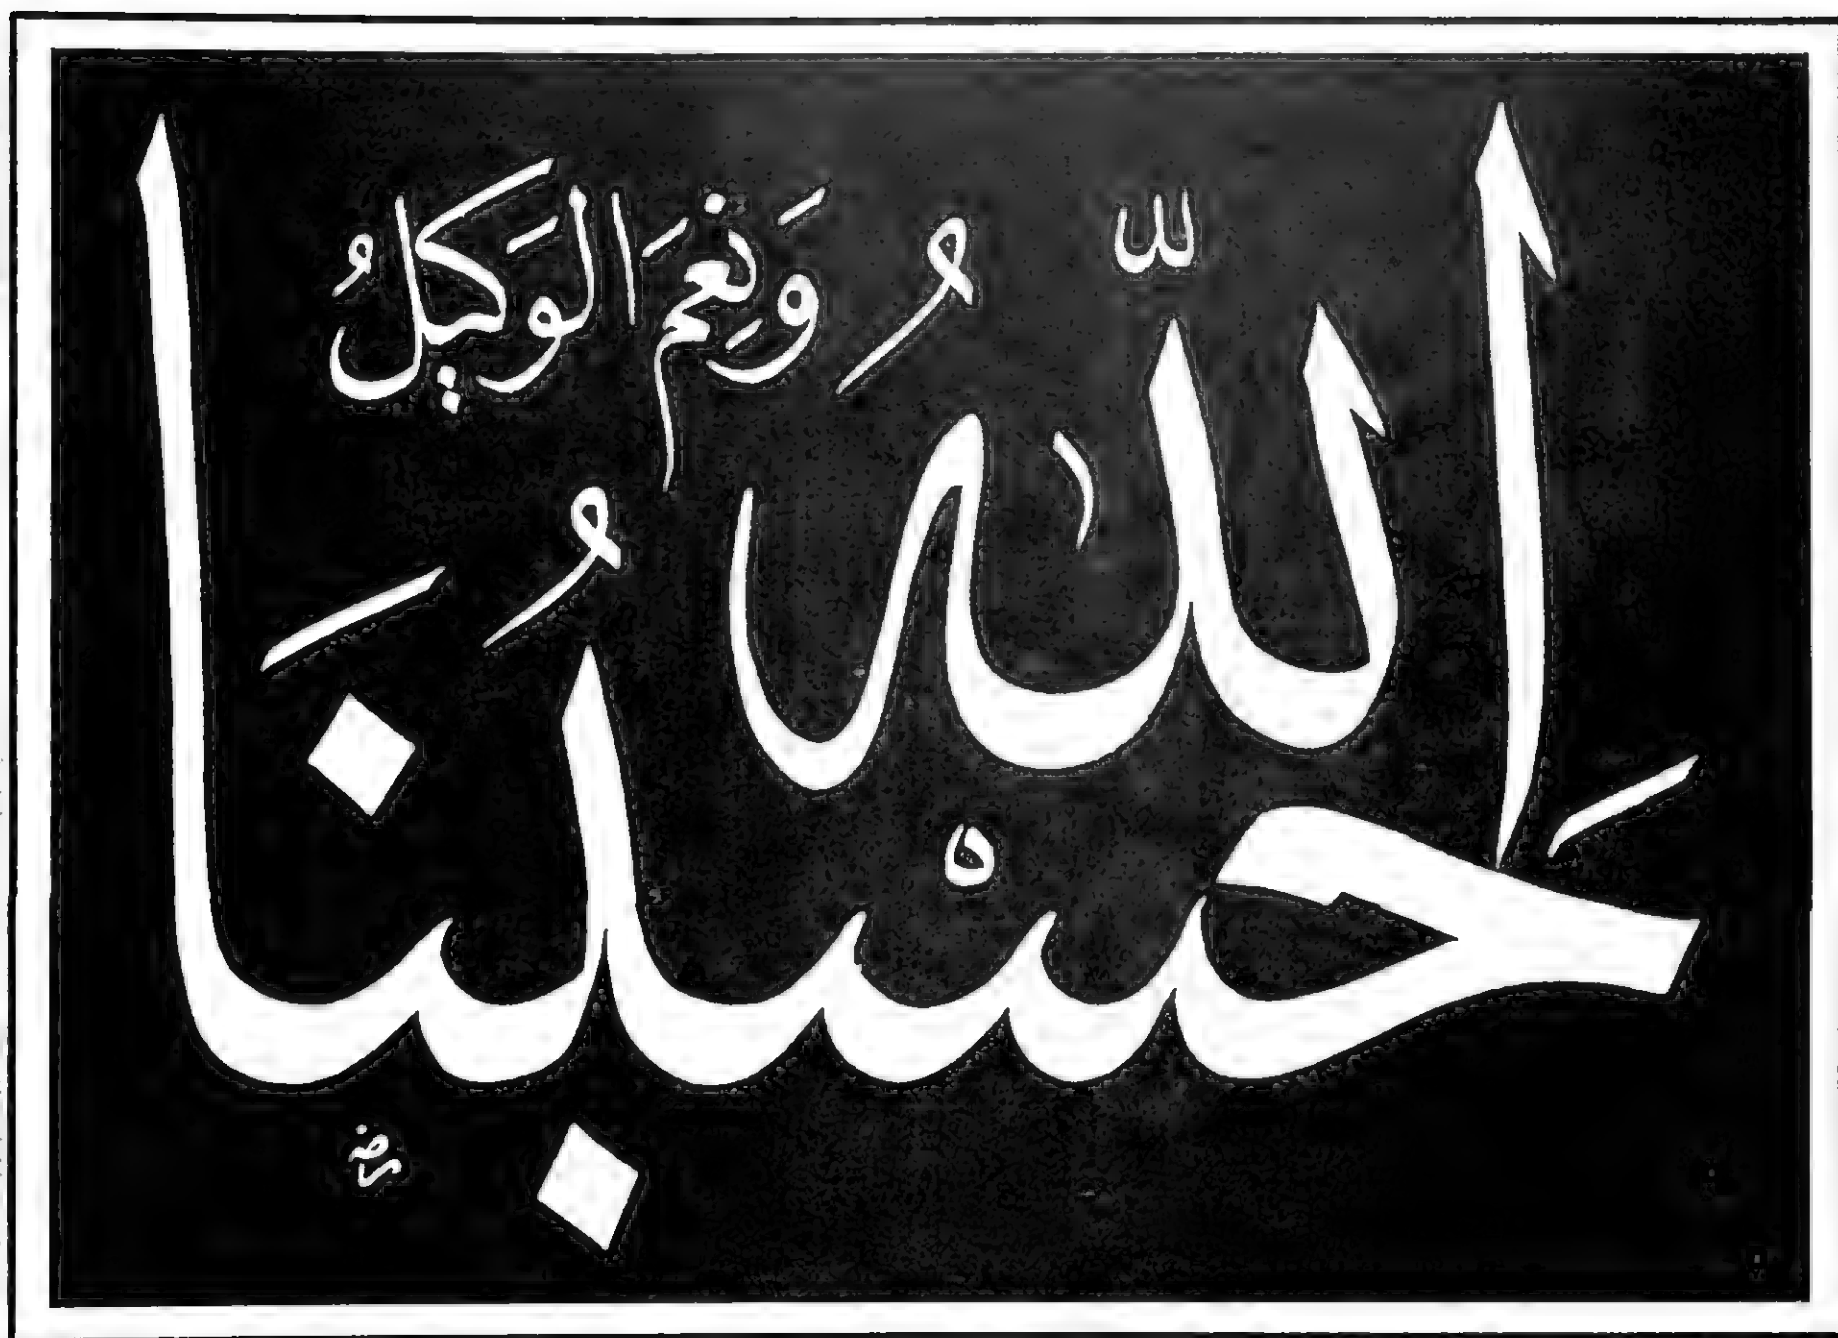 حَسْبُنَا
اللّٰهُ
وَنِعْمَ الْوَكِيلُ